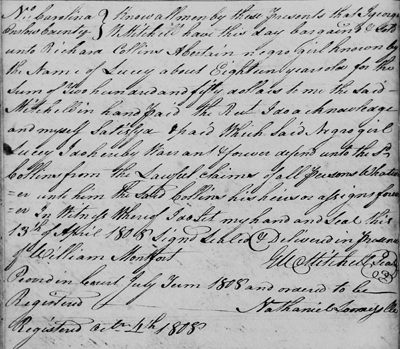 No. Carolina } Know all men by these Presents that I George
Onslow County } W Mitchell have this day bargain'd & Sold
unto Richard Collins A Certain negro girl known by
the Name of Lucey about Eighteen years old for the
Sum of Two hundred and fifty dollars to me the Said
Mitchell in hand paid the Rect. I do acknowledge
and myself Satisfyd & paid Which said Negro girl
Lucey I do hereby Warrant & forever defend unto the Sd
Collins from the Lawfull claims of all Persons Whatev
=er unto him the Said Collins his heirs or assigns forev
=er In Witness Whereof I do Set my hand and Seal this
13th of April 1808 Signd Sealed & Delivered in Presence
of William Montfort G W Mitchell Seal
Proved in Court July Term 1808 and ordered to be
Registered Nathaniel Loomiss Clk
Registered Octr 4th 1808